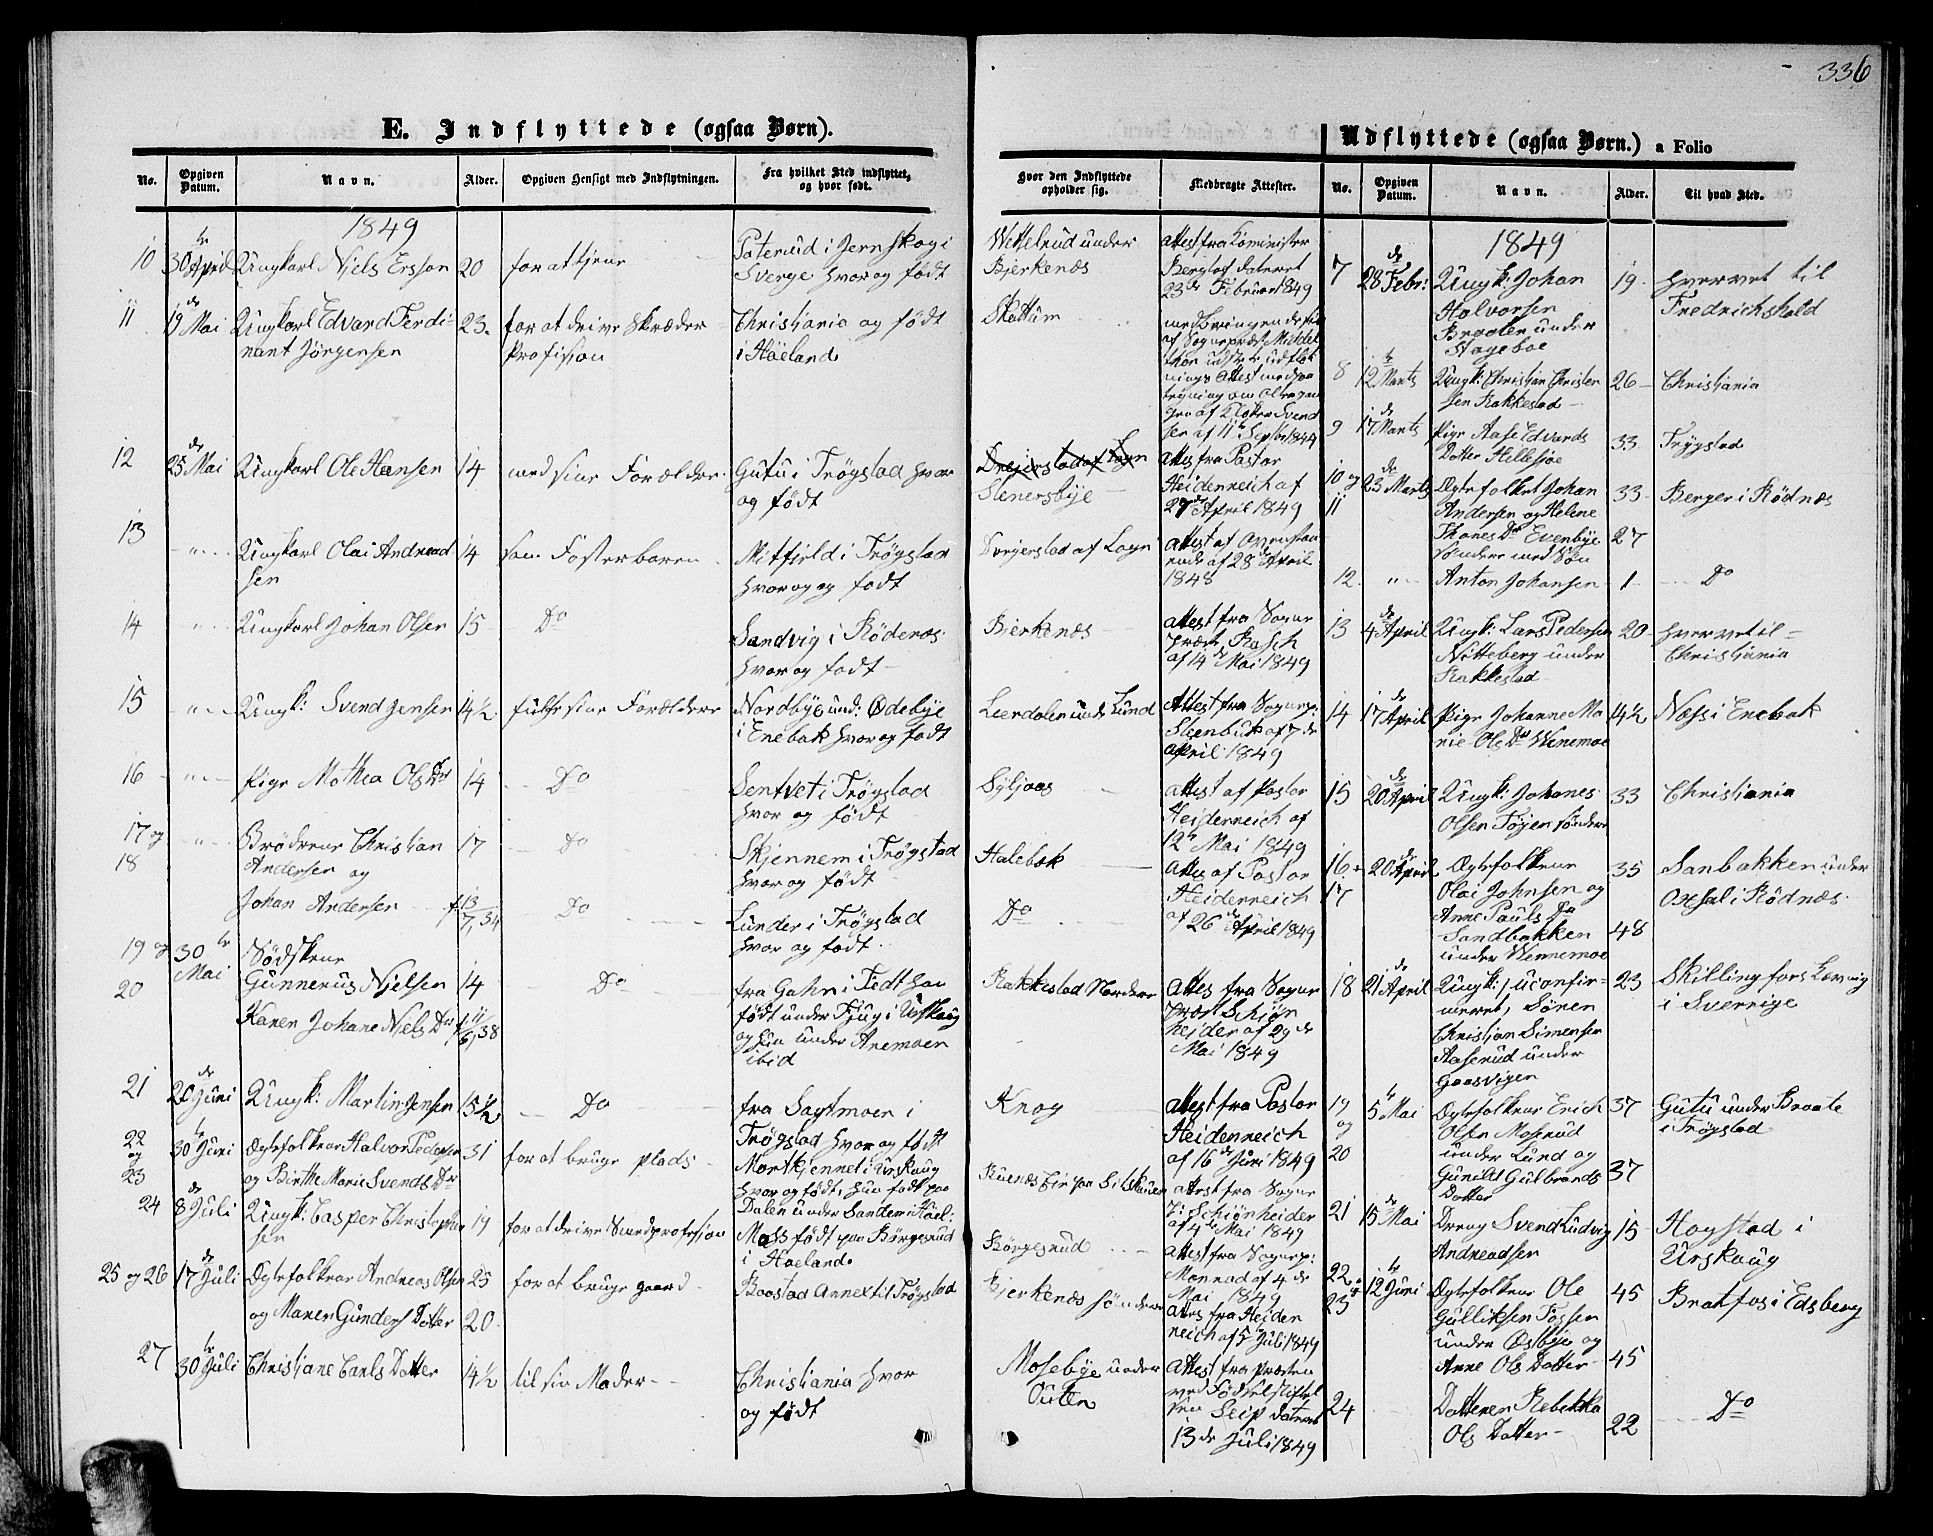 336
E. Indflyttede (ogsaa Børn).
No. Opgiven Datum. Navn. Alder. Opgiven Hensigt med Indflytningen. Fra hvilket Sted indflyttet, og hvor født. Hvor den Indflyttede opholder sig. Medbragte Attester.
1849
10 30 te April Ungkarl Niels Ersson 20 for at tjene
Paterud i Jernskog i
Sverge hvor og født
Wettelrud under
Bjerkenæs
attest fra Cominister
Berglof dateret
23de Februar 1849
11 19 de Mai Ungkarl Edvard Ferdi-
nant Jørgensen
23. for at drive Skræder
Profision
Christiania og født
i Høeland
Skattum
12 25 de Mai Ungkarl Ole Hansen 14 med sine Forældre
Gutu i Trøgstad hvor
og født
Drejerstad af Lagn
Stenersbye
Attest fra Pastor
Heidenreich af
27de April 1849
13 " Ungkarl Olai Andread
sen
14 som Fosterbaren
Mitfjeld i Trøgstad
hvor og født
Drejerstad af Lagn
attest af Ovenstaa
ende af 28 April
1848
14 " Ungkarl Johan Olsen 15 Do
Sandvig i Rødenæs
hvor og født
Bjerkenæs
attest fra Sogne
Præst Rasch
af 14de Mai 1849
15 " Ungk: Svend Jensen 14½ fulgte sine Forældre
Nordbye und: Ødebye
i Enebak hvor og født
Lierdalen unde Lund
Attest fra Sognep:
Steenbuk af 7de
April 1849
16 " Pige Mathea Ols Dtr 14 Do
Sentvet i Trøgstad
hvor og født
Syljaas
attest af Pastor
Heidenreich af
12te Mai 1849
17 og 18 " Brødrene Christian
Andersen og
17 Do
Skjennem i Trøgstad
hvor og født
Halebæk
attest af Pastor
Heidenreich
af 26de April 1849
Johan Andersen f. 13/7, 34 Do
Lunder i Trøgstad
hvor og født
Do
19 og 20 30 te Mai Sødskene
Gunnerus Nielsen 14 Do
Karen Johane Niels Dtr f. 11/6, 38
fra Gahn i Fedt han
født under Fjug i Urskoug
og hun under Anemoen
ibid
Rakkestad Nordre
Attes fra Sogne
Præst Schiøn
heider af 29de
Mai 1849
21 20 de Juni Ungk: Martin Jensen 15½ Do
fra Sagtmoen i
Trøgstad hvor og født
Knog
Attest fra Pastor
Heidenreich
af 16de Juni 1849
22 og 23 30 te Juni Ægtefolkene Halvor Pedersen
og Birthe Marie Svends Dtr
31 for at bruge plads
Mortkjennet i Urskaug
hvor og født, hun født paa
Dalen under Sanden i Høel:
attest fra Sogne
P: Schiønheider
af 4de Mai 1849
24 8 de Juli Ungk: Casper Christopher
sen
19 for at drive Smedprofesion
Moss født paa Børgesrud
i Høeland
Børgesrud
attest fra Sognep:
Monrad af 4de
Mai 1849
25 og 26 17 de Juli Ægtefolkene Andreas Olsen 25 for at bruge gaard
og Maren Gunders Datter 20
Baastad Annex til Trøgstad
Bjerkenæs Søndre
Attes fra Heiden
reich af 5te Juli 1849
27 30 te Juli Christiane Carls Datter 14½ til sin Moder
Christiania hvor
og født
Mosebye under
Outen
attest fra Præsten
ved Fødselstiftel
sen Seip dateret
13de Juli 1849
Udflyttede (ogsaa Børn.) a Folio
No. Opgiven Datum. Navn. Alder. Til hvad Sted.
1849
7 28 de Febr: Ungk: Johan
Halvorsen
Braaten under
Hageboe
19 hvervet til
Fredrichshald
8 12 te Marts Ungk: Christian Christen
sen Rakkestad
26 Christiania
9 17 de Marts Pige Aase Edvards
Datter Hellesjøe
33 Trygstad
10 og 11 23 de Marts Ægtefolket Johan
Andersen og Helene
Thores Dtr Evenbye
Søndere med Søn
33 Berger i Rødnæs
27
12 " Anton Johansen 1 Do
13 4 de April Ungk: Lars Pedersen
Nitteberg under
Rakkestad
20 hvervet til
Christiania
14 17 de April Pige Johanne Ma
rie Ols Dtr Winemoe
14½ Næss i Enebak
15 20 de April Ungk: Johanes
Olsen Tøjen Søndre
33 Christiania
16 + 17 20 de April Ægtefolkene
Olai Johnsen og
Anne Pauls Dtr
Sandbakken
under Wennemoe
35 Sanbakken under
Oxsal i Rødnæs
48
18 21 de April Ungk: /uconfir-
meret, Søren
Christian Simensen
Aaserud under
Gaasvigen
23 Skillingfors Læring
i Sverrige
19 og 20 5 te Mai Ægtefolkene Erich
Olsen Moserud
under Lund og
Gunild Gulbrands
Datter
37 Gutu under Braate
i Trøgstad
37
21 15 de Mai Dreng Svend Ludvig
Andreadsen
15 Hogstad i
Urskaug
22 og 23 12 te Juni Ægtefolkene Ole
Gulliksen Fossen
under Østbye og
Anne Ols Datter
45 Bratfos i Edsberg
45
24 Datteren Rebekka
Ols Datter
22 Do